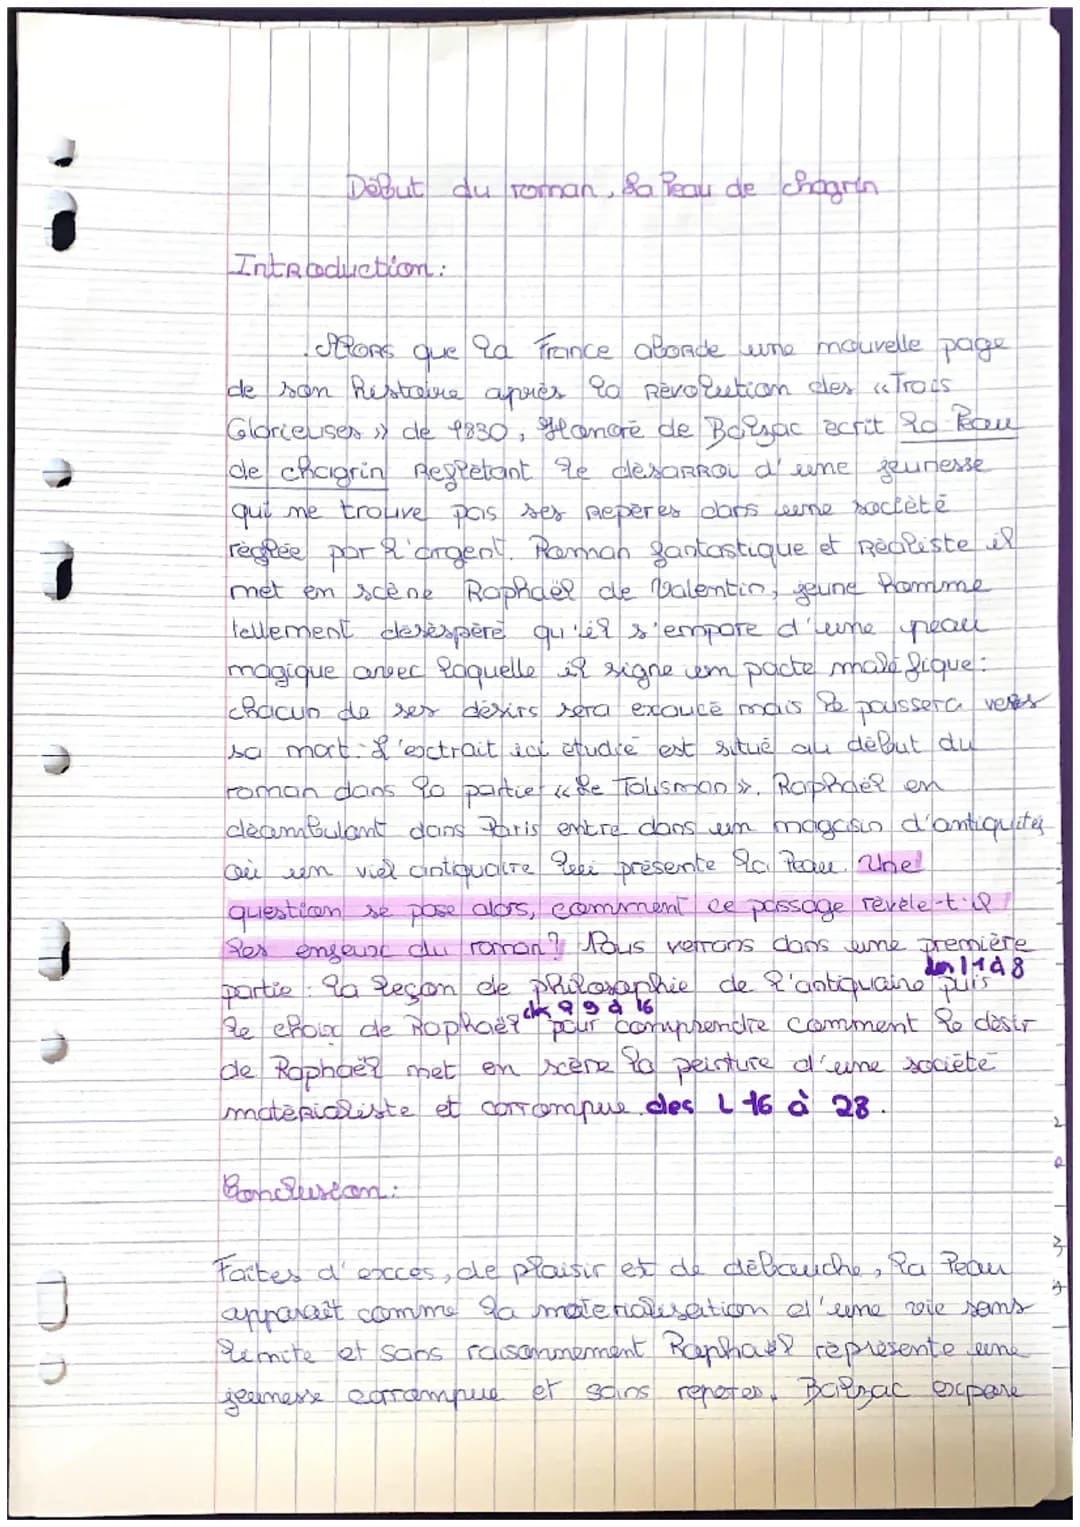 Début du roman, La Peau de chagrin
Introduction :
Alors que la France aborde une nouvelle page
de son histoire après la Révolution des « Trois
Glorieuses » de 1830, Honoré de Balzac écrit La Peau
de chagrin Reflétant le désarroi d'une jeunesse
qui ne trouve pas ses repères dans une société
réglée par l'argent. Roman fantastique et Réaliste il
met en scène Raphaël de Valentin, jeune homme
tellement désespéré qu'il s'empare d'une peau
magique avec laquelle il signe un pacte maléfique :
chacun de ses désirs sera exaucé mais le poussera vers
sa mort. L'extrait ici étudié est situé au début du
roman dans la partie « Le Talisman ». Raphaël en
déambulant dans Paris entre dans un magasin d'antiquités
où un vieil antiquaire lui présente la Peau. Une
question se pose alors, comment ce passage révèle-t-il
les enjeux du roman ? Nous verrons dans une première
des l 1 à 8
partie : la leçon de philosophie de l'antiquaire puis
des l 9 à 16
le choix de Raphaël pour comprendre comment le désir
de Raphaël met en scène la peinture d'une société
matérialiste et corrompue des L 16 à 28.
Conclusion :
Faites d'excès, de plaisir et de débauche, la Peau
apparaît comme la matérialisation d'une vie sans
limite et sans raisonnement Raphaël représente une
jeunesse corrompue et sans repères. Balzac expose